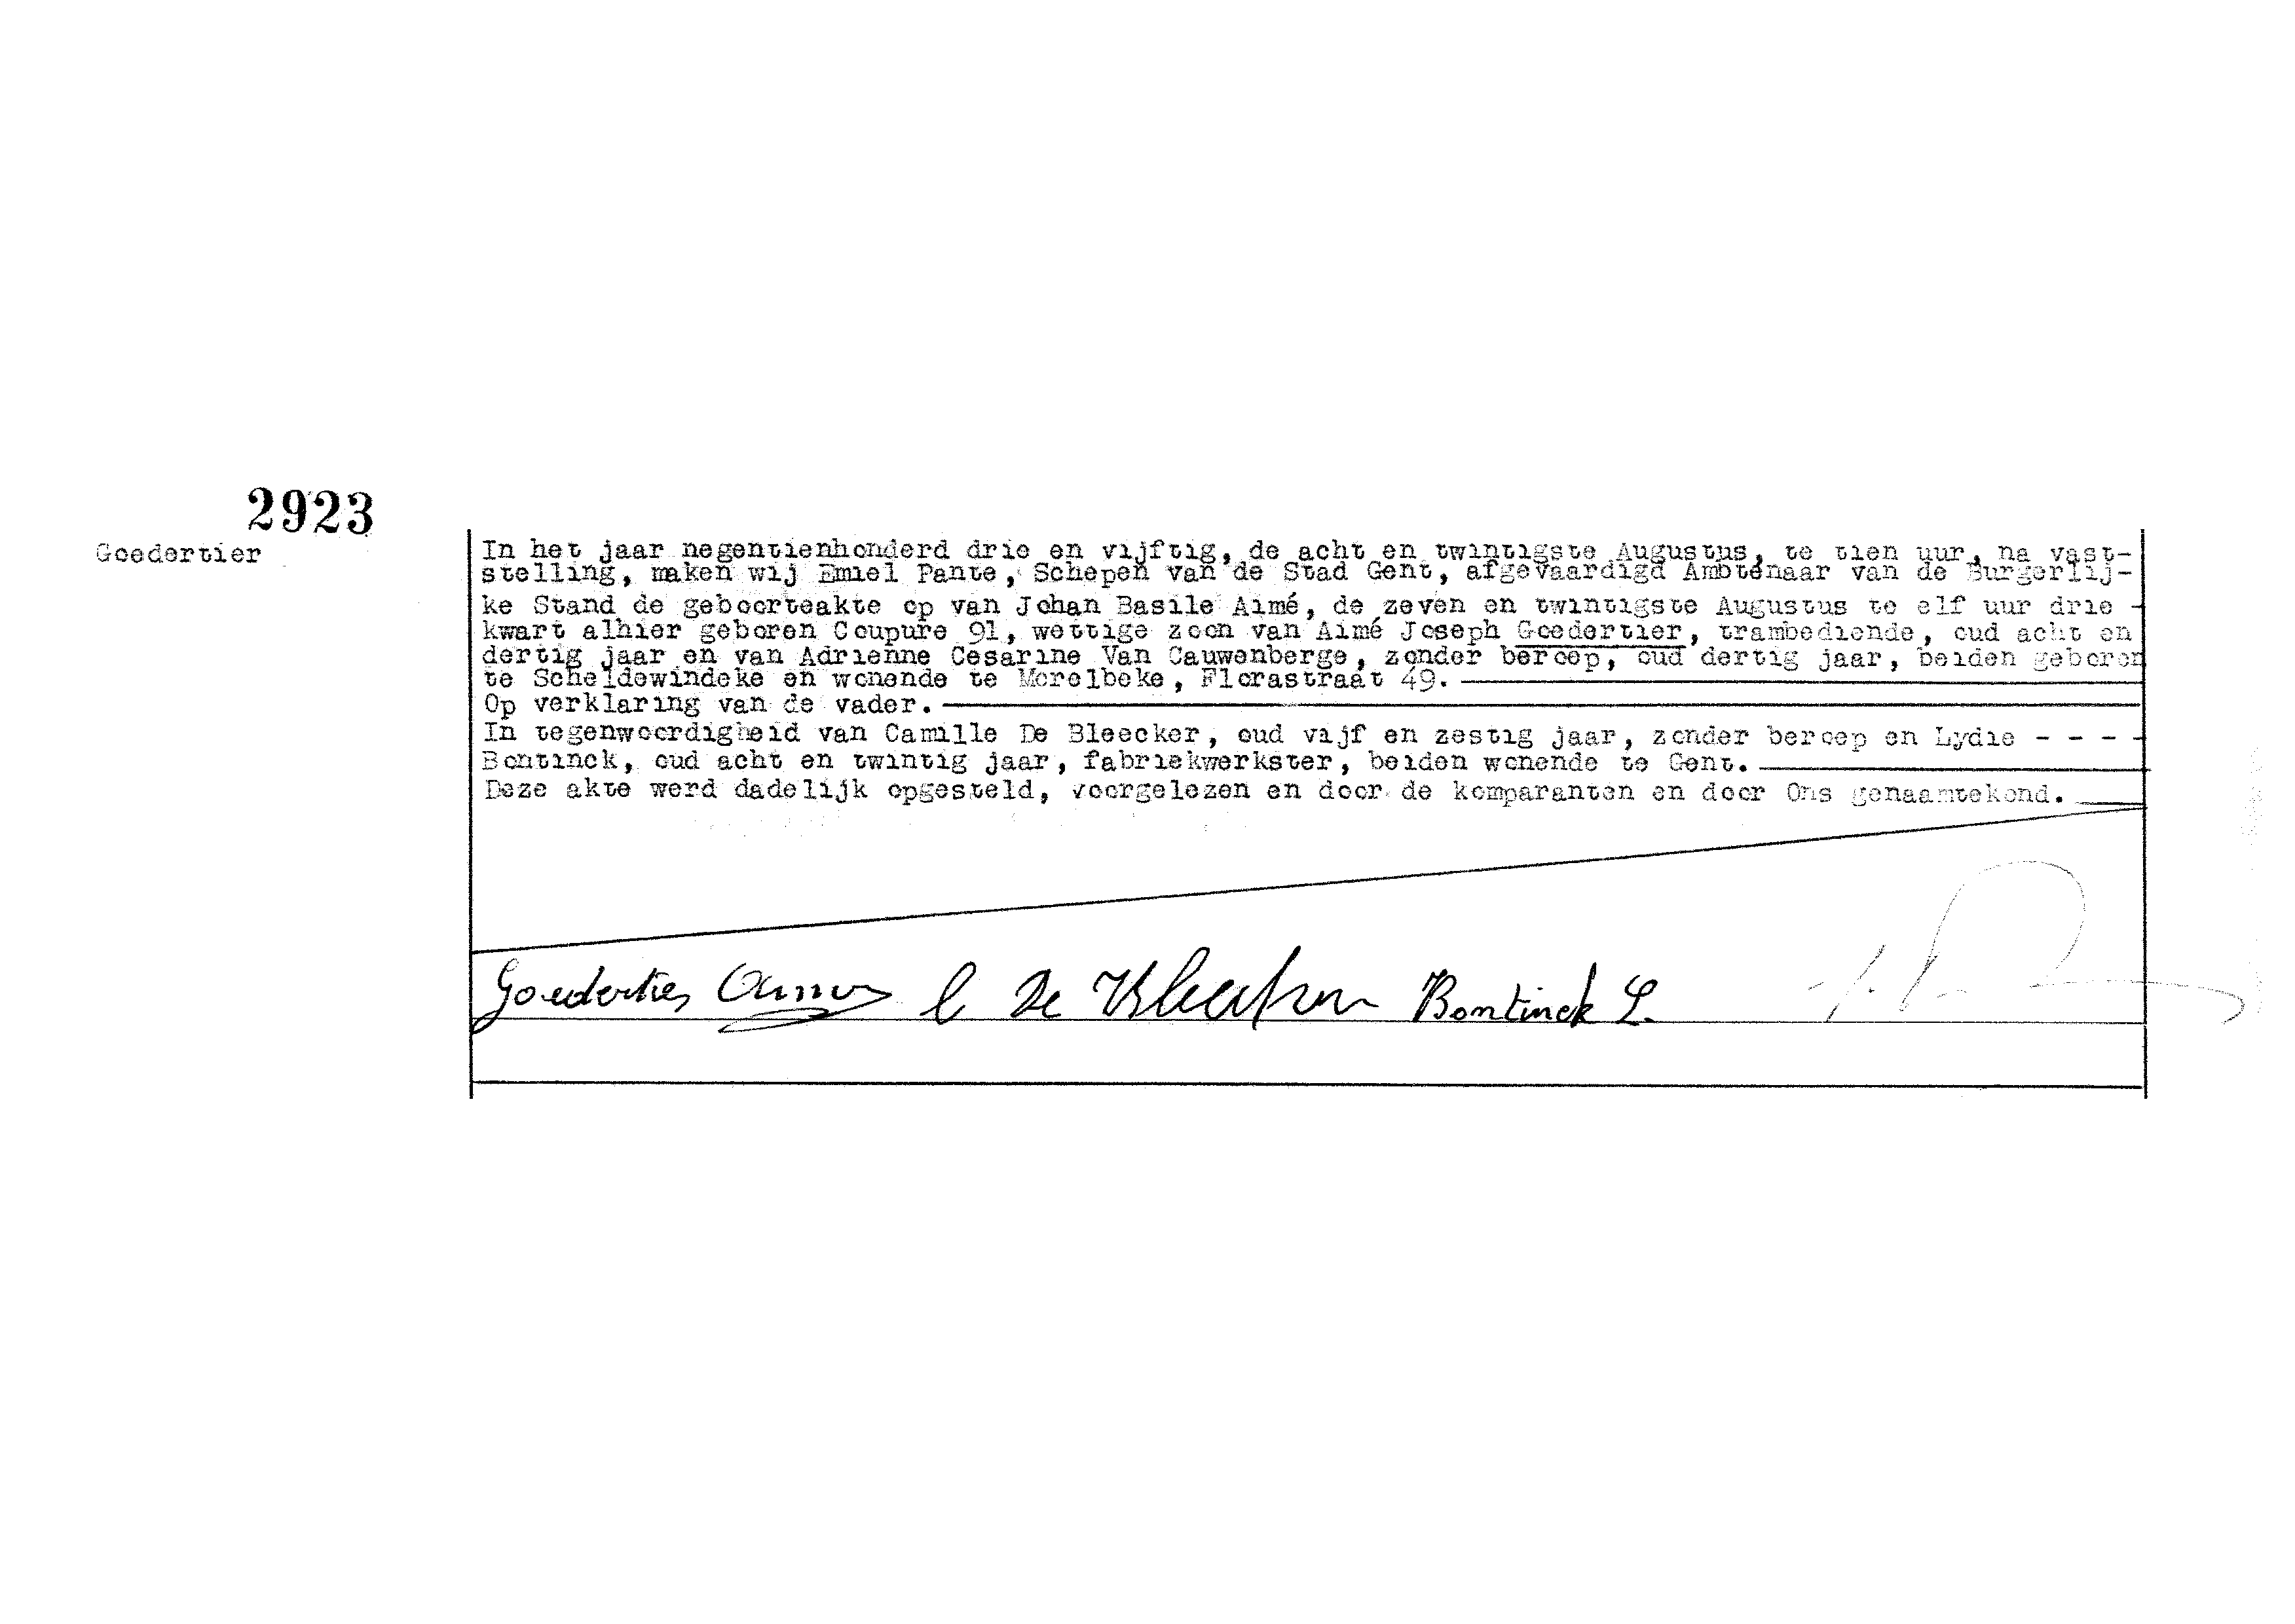 2923
Goedertier
In het jaar negentienhonderd drie en vijftig, de acht en twintigste Augustus, te tien uur, na vast-
stelling, maken wij Emiel Pante, Schepen van de Stad Gent, afgevaardigd Ambtenaar van de Burgerlij-
ke Stand de geboorteakte op van Johan Basile Aimé, de zeven en twintigste Augustus te elf uur drie -
kwart alhier geboren Coupure 91, wettige zoon van Aimé Joseph Goedertier, trambediende, oud acht en
dertig jaar en van Adrienne Cesarine Van Cauwenberge, zonder beroep, oud dertig jaar, beiden geboren
te Scheldewindeke en wonende te Merelbeke, Florastraat 49.
Op verklaring van de vader.
In tegenwoordigheid van Camille De Bleecker, oud vijf en zestig jaar, zonder beroep en Lydie - - - -
Bontinck, oud acht en twintig jaar, fabriekwerkster, beiden wonende te Gent.
Deze akte werd dadelijk opgesteld, voorgelezen en door de komparanten en door Ons genaamtekend.
Goedertier De Bontinck L.